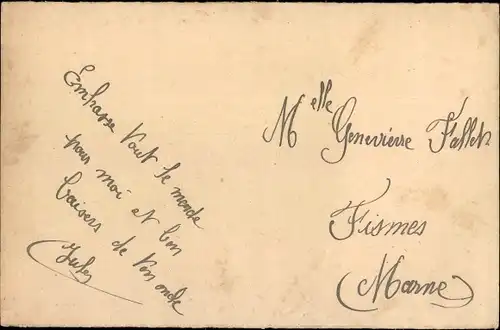 Embrasse tout le monde
pour moi et bon
baisers de ton oncle
Jules
Melle Genevieve Fallet
Fismes
(Marne)